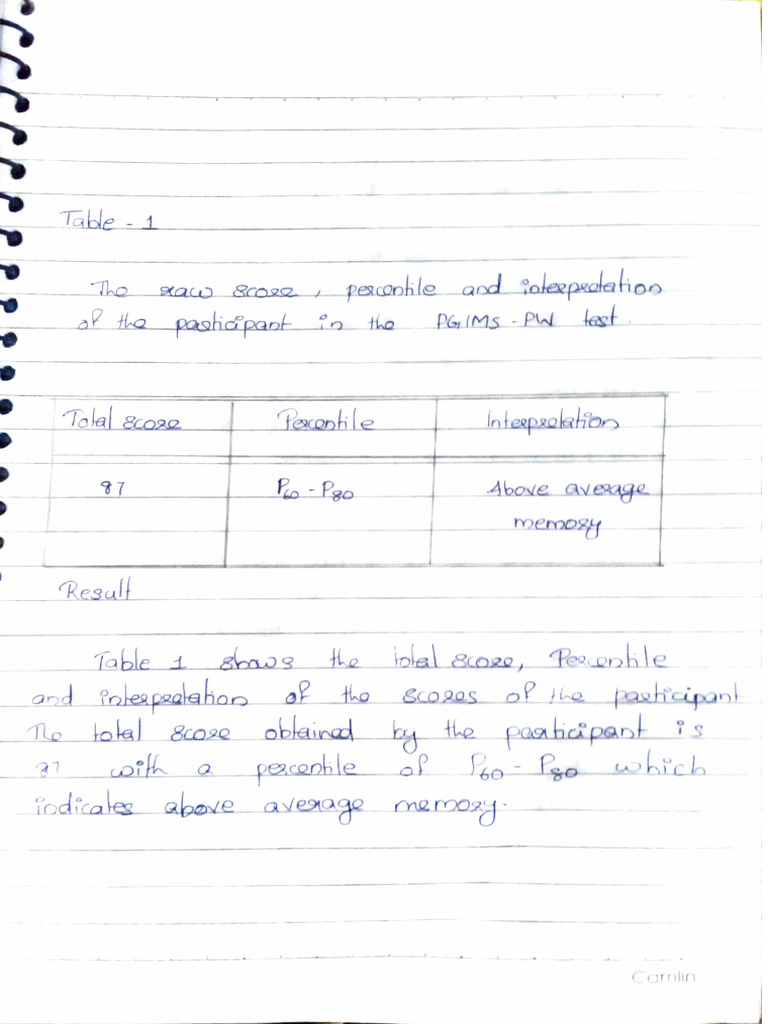 Table - 1
The raw score, percentile and interpretation
of the participant in the PGIMS-PW test.
Total score Percentile Interpretation
87 P60 - P80 Above average
memory
Result
Table 1 shows the total score, Percentile
and interpretation of the scores of the participant
The total score obtained by the participant is
87 with a percentile of P60 - P80 which
indicates above average memory.
Camlin